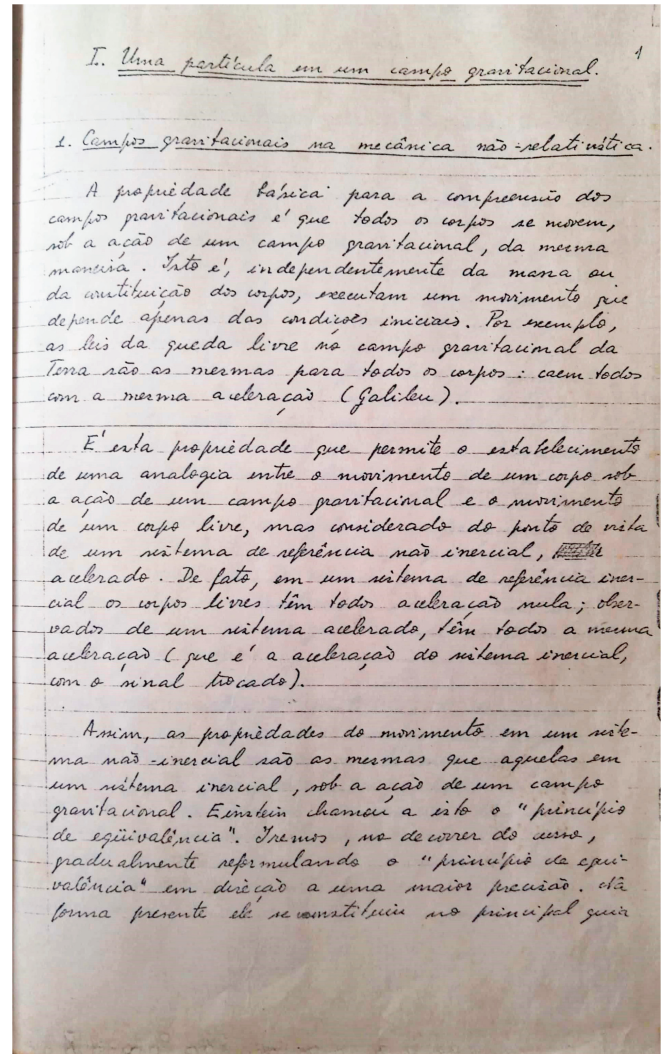 1
I. Uma partícula em um campo gravitacional.
1. Campos gravitacionais na mecânica não-relativística.
A propriedade básica para a compreensão dos
campos gravitacionais é que todos os corpos se movem,
sob a ação de um campo gravitacional, da mesma
maneira. Isto é, independentemente da massa ou
da constituição dos corpos, executam um movimento que
depende apenas das condições iniciais. Por exemplo,
as leis da queda livre no campo gravitacional da
Terra são as mesmas para todos os corpos: caem todos
com a mesma aceleração (Galileu).
É esta propriedade que permite o estabelecimento
de uma analogia entre o movimento de um corpo sob
a ação de um campo gravitacional e o movimento
de um corpo livre, mas considerado do ponto de vista
de um sistema de referência não inercial,
acelerado. De fato, em um sistema de referência iner-
cial os corpos livres têm todos aceleração nula; obser-
vados de um sistema acelerado, têm todos a mesma
aceleração (que é a aceleração do sistema inercial,
com o sinal trocado).
Assim, as propriedades do movimento em um siste-
ma não-inercial são as mesmas que aquelas em
um sistema inercial, sob a ação de um campo
gravitacional. Einstein chamou a isto o "princípio
de eqüivalência". Iremos, no decorrer do curso,
gradualmente reformulando o "princípio de equi-
valência" em direção a uma maior precisão. Na
forma presente ele se constituiu no principal guia